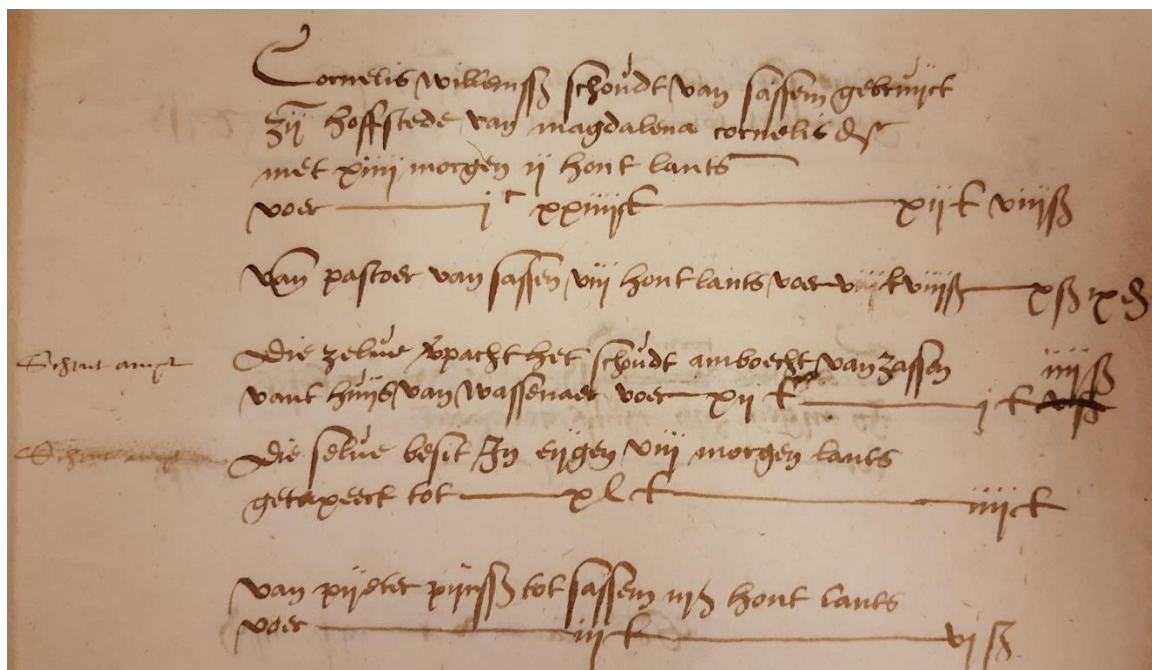 Cornelis willemsz schoudt van sassem gebruyct
zyn hoffstede van magdalena cornelis dr
met xiiii morgen ii hont lants
voer i c xxiiii £ xii £ viii ß
van pastoer van sassen viii hont lants voer ß xß ix d
Schout ampt
Die zelve pacht het schoudt amboecht van zassen iiii ß
vant huys van wassenaer voer xii £ i £
Die selve besit In eygen viii morgen lants
getaxeert tot xl £ iiii £
van pyeter pyersz tot sassem hont lants
voer iii £ vi ß